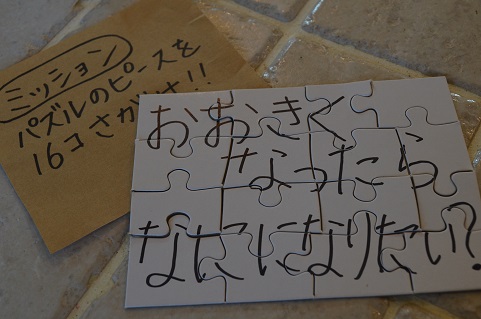 ミッション
パズルのピースを
16コさがせ!!
おおきく
なったら
なにになりたい?